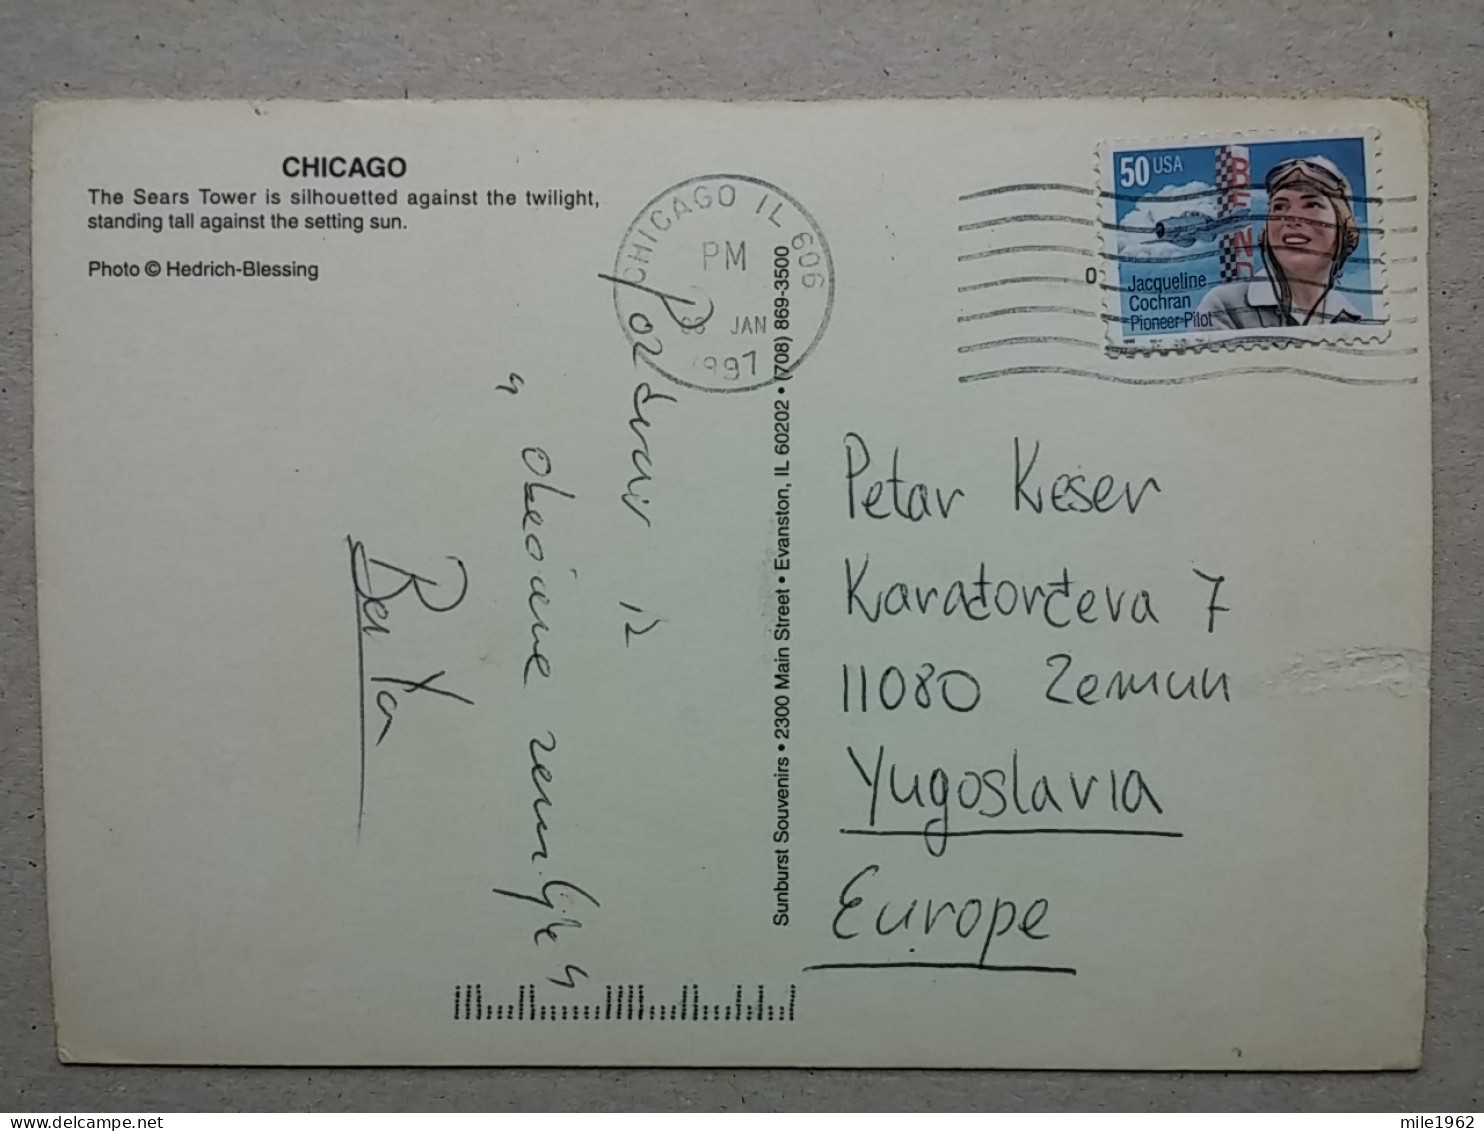 CHICAGO
The Sears Tower is silhouetted against the twilight,
standing tall against the setting sun.
Photo © Hedrich-Blessing
CHICAGO IL 606
PM
JAN
1997
50 USA
BEND
Jacqueline
Cochran
Pioneer Pilot
Pozdrav iz
" obećane zemlje "
Sunburst Souvenirs • 2300 Main Street • Evanston, IL 60202 • (708) 869-3500
Petar Keser
Karađorđeva 7
11080 Zemun
Yugoslavia
Europe
mile1962